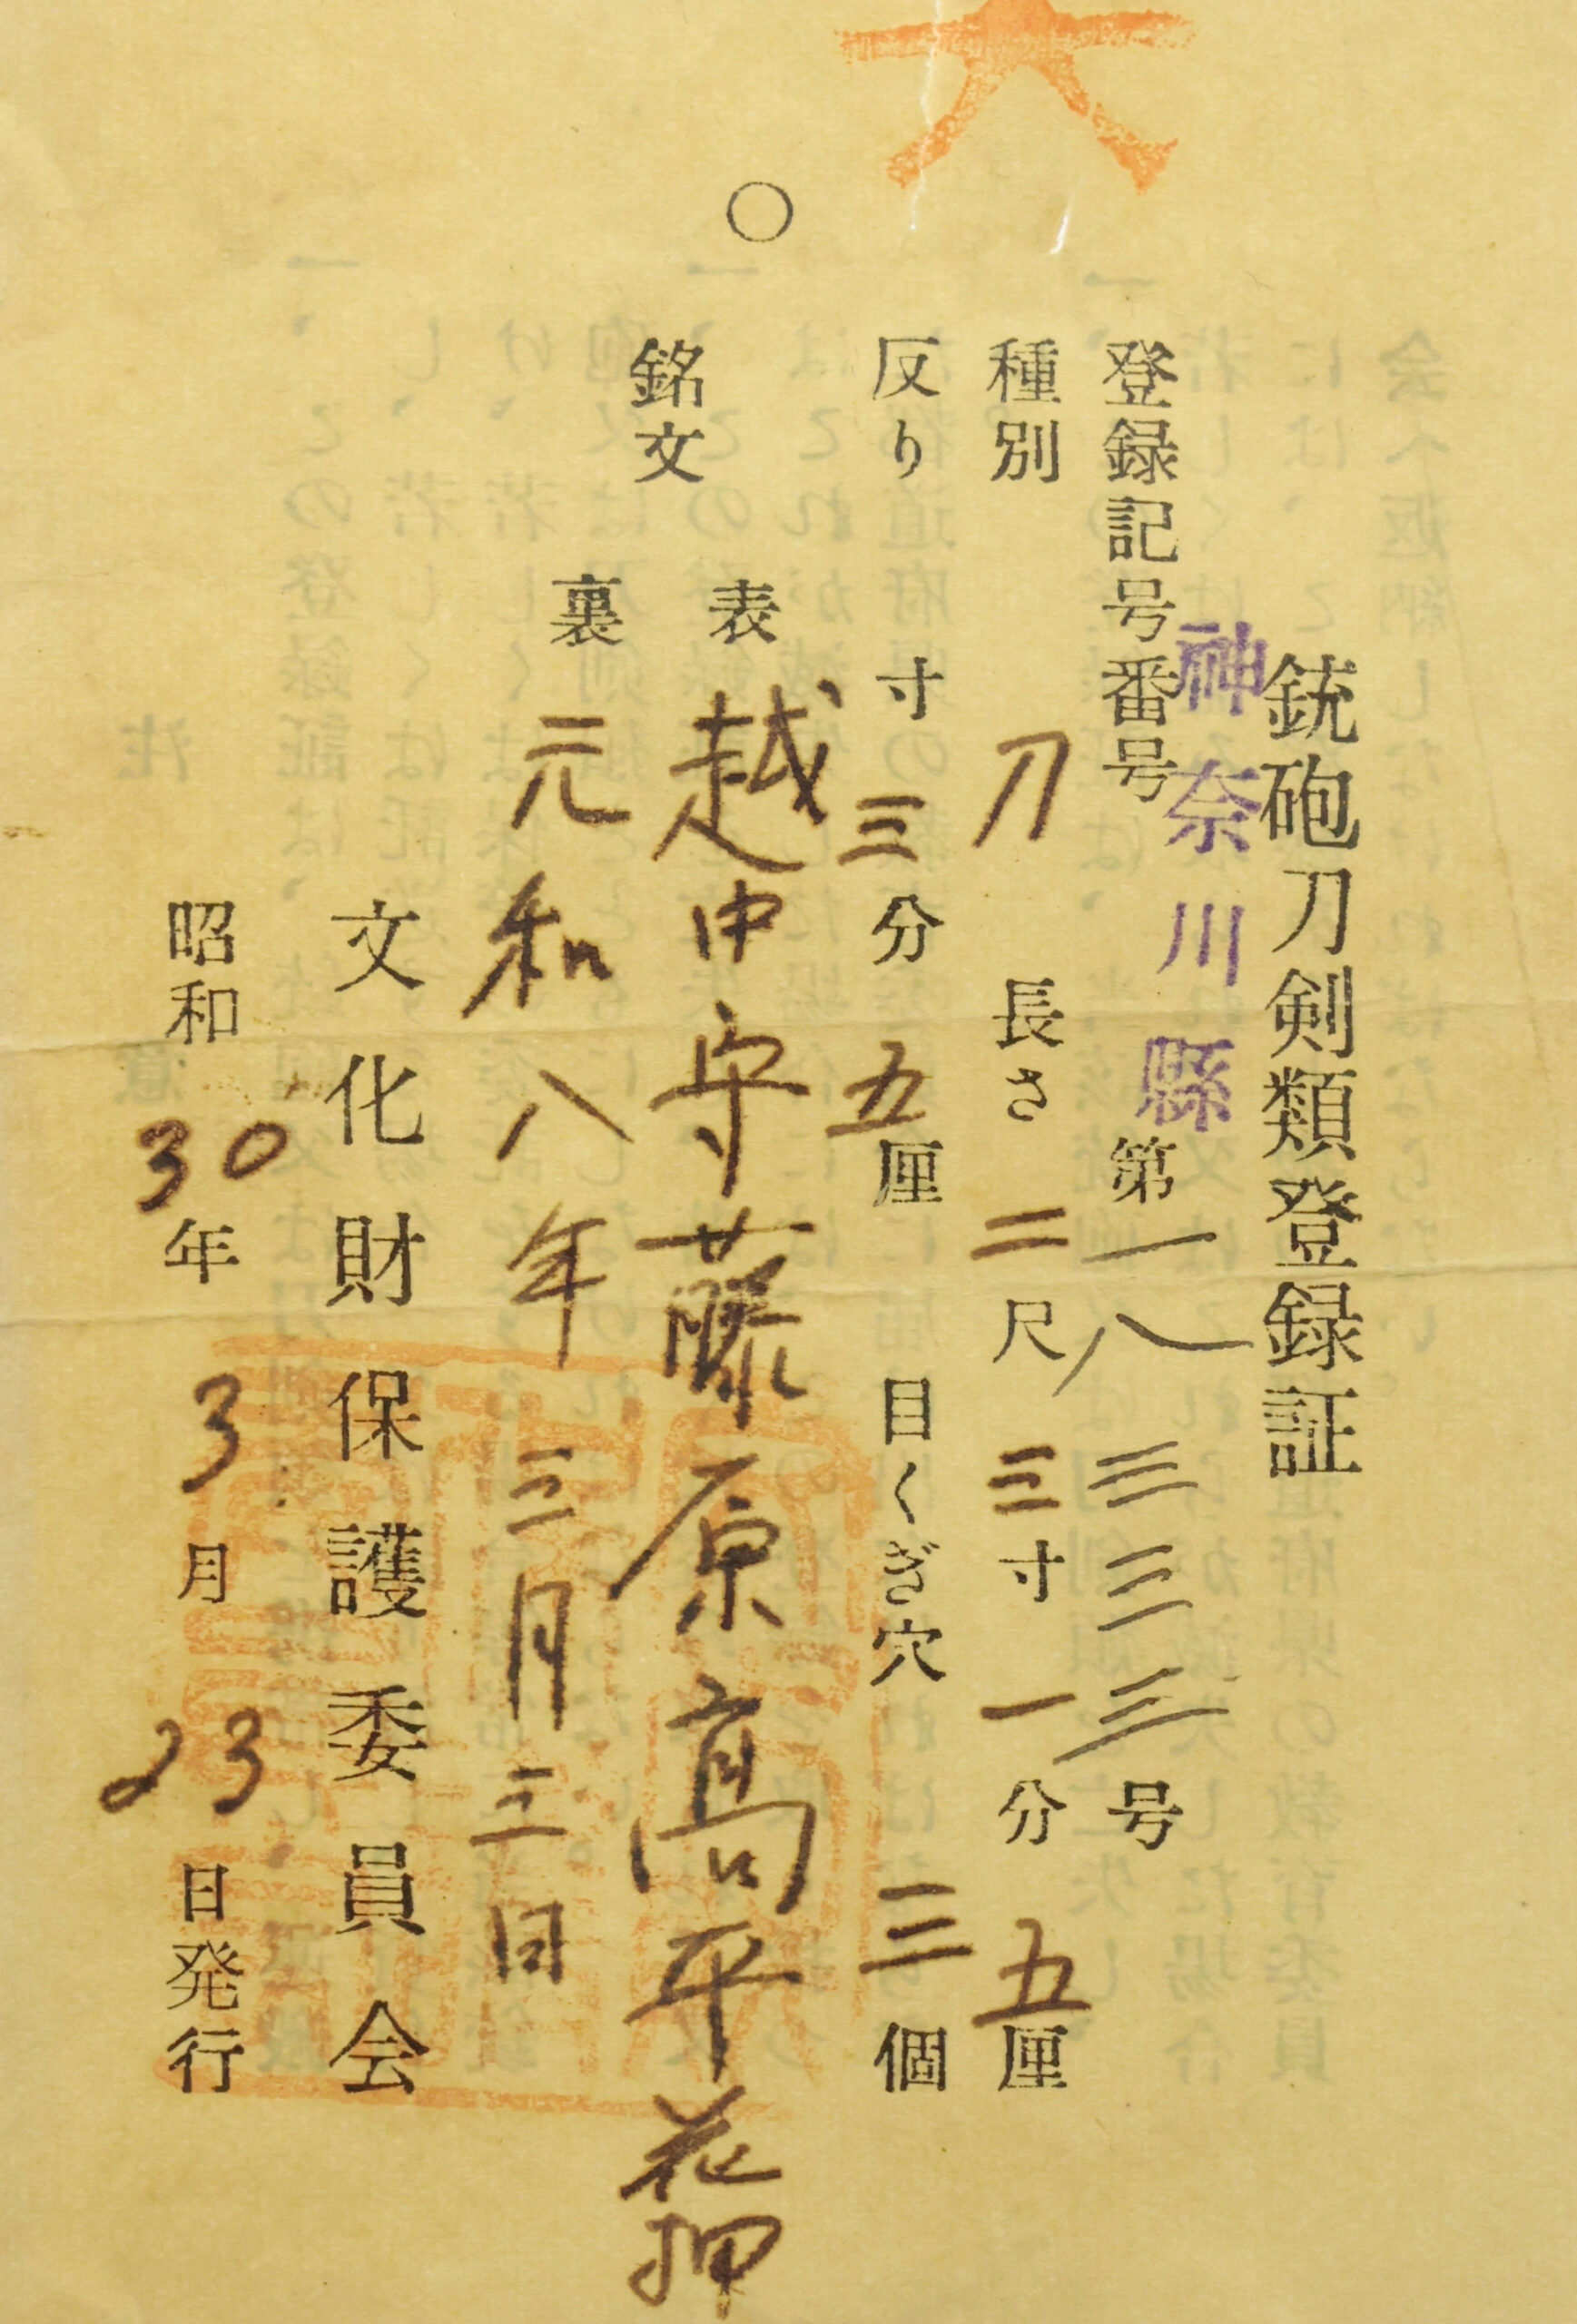 銃砲刀剣類登録証
神奈川縣
登録記号番号 第一八三三三号
種別 刀 長さ 二尺三寸一分五厘
反り 寸三分五厘 目くぎ穴 三個
銘文
表 越中守藤原高平花押
裏 元和八年三月三日
文化財保護委員会
昭和30年3月23日発行